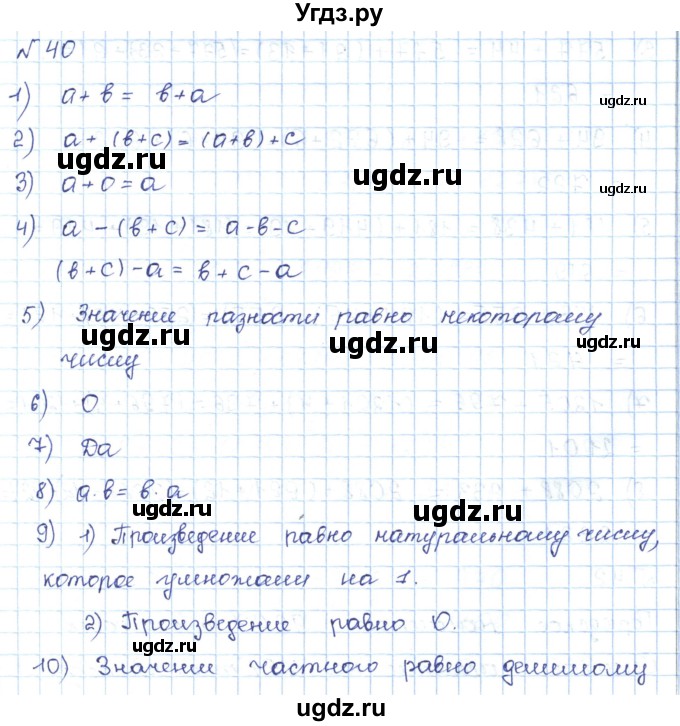 Угдз.ру
№ 40
1) a + b = b + a
2) a + (b + c) = (a + b) + c
3) a + 0 = a
4) a - (b + c) = a - b - c
(b + c) - a = b + c - a
5) Значение разности равно некоторому
числу
6) 0
7) Да
8) a · b = b · a
9) 1) Произведение равно натуральному числу,
которое умножали на 1.
2) Произведение равно 0.
10) Значение частного равно делимому
ugdz.ru
ugdz.ru
ugdz.ru
ugdz.ru
ugdz.ru
ugdz.ru
ugdz.ru
ugdz.ru
ugdz.ru
ugdz.ru
ugdz.ru
ugdz.ru
ugdz.ru